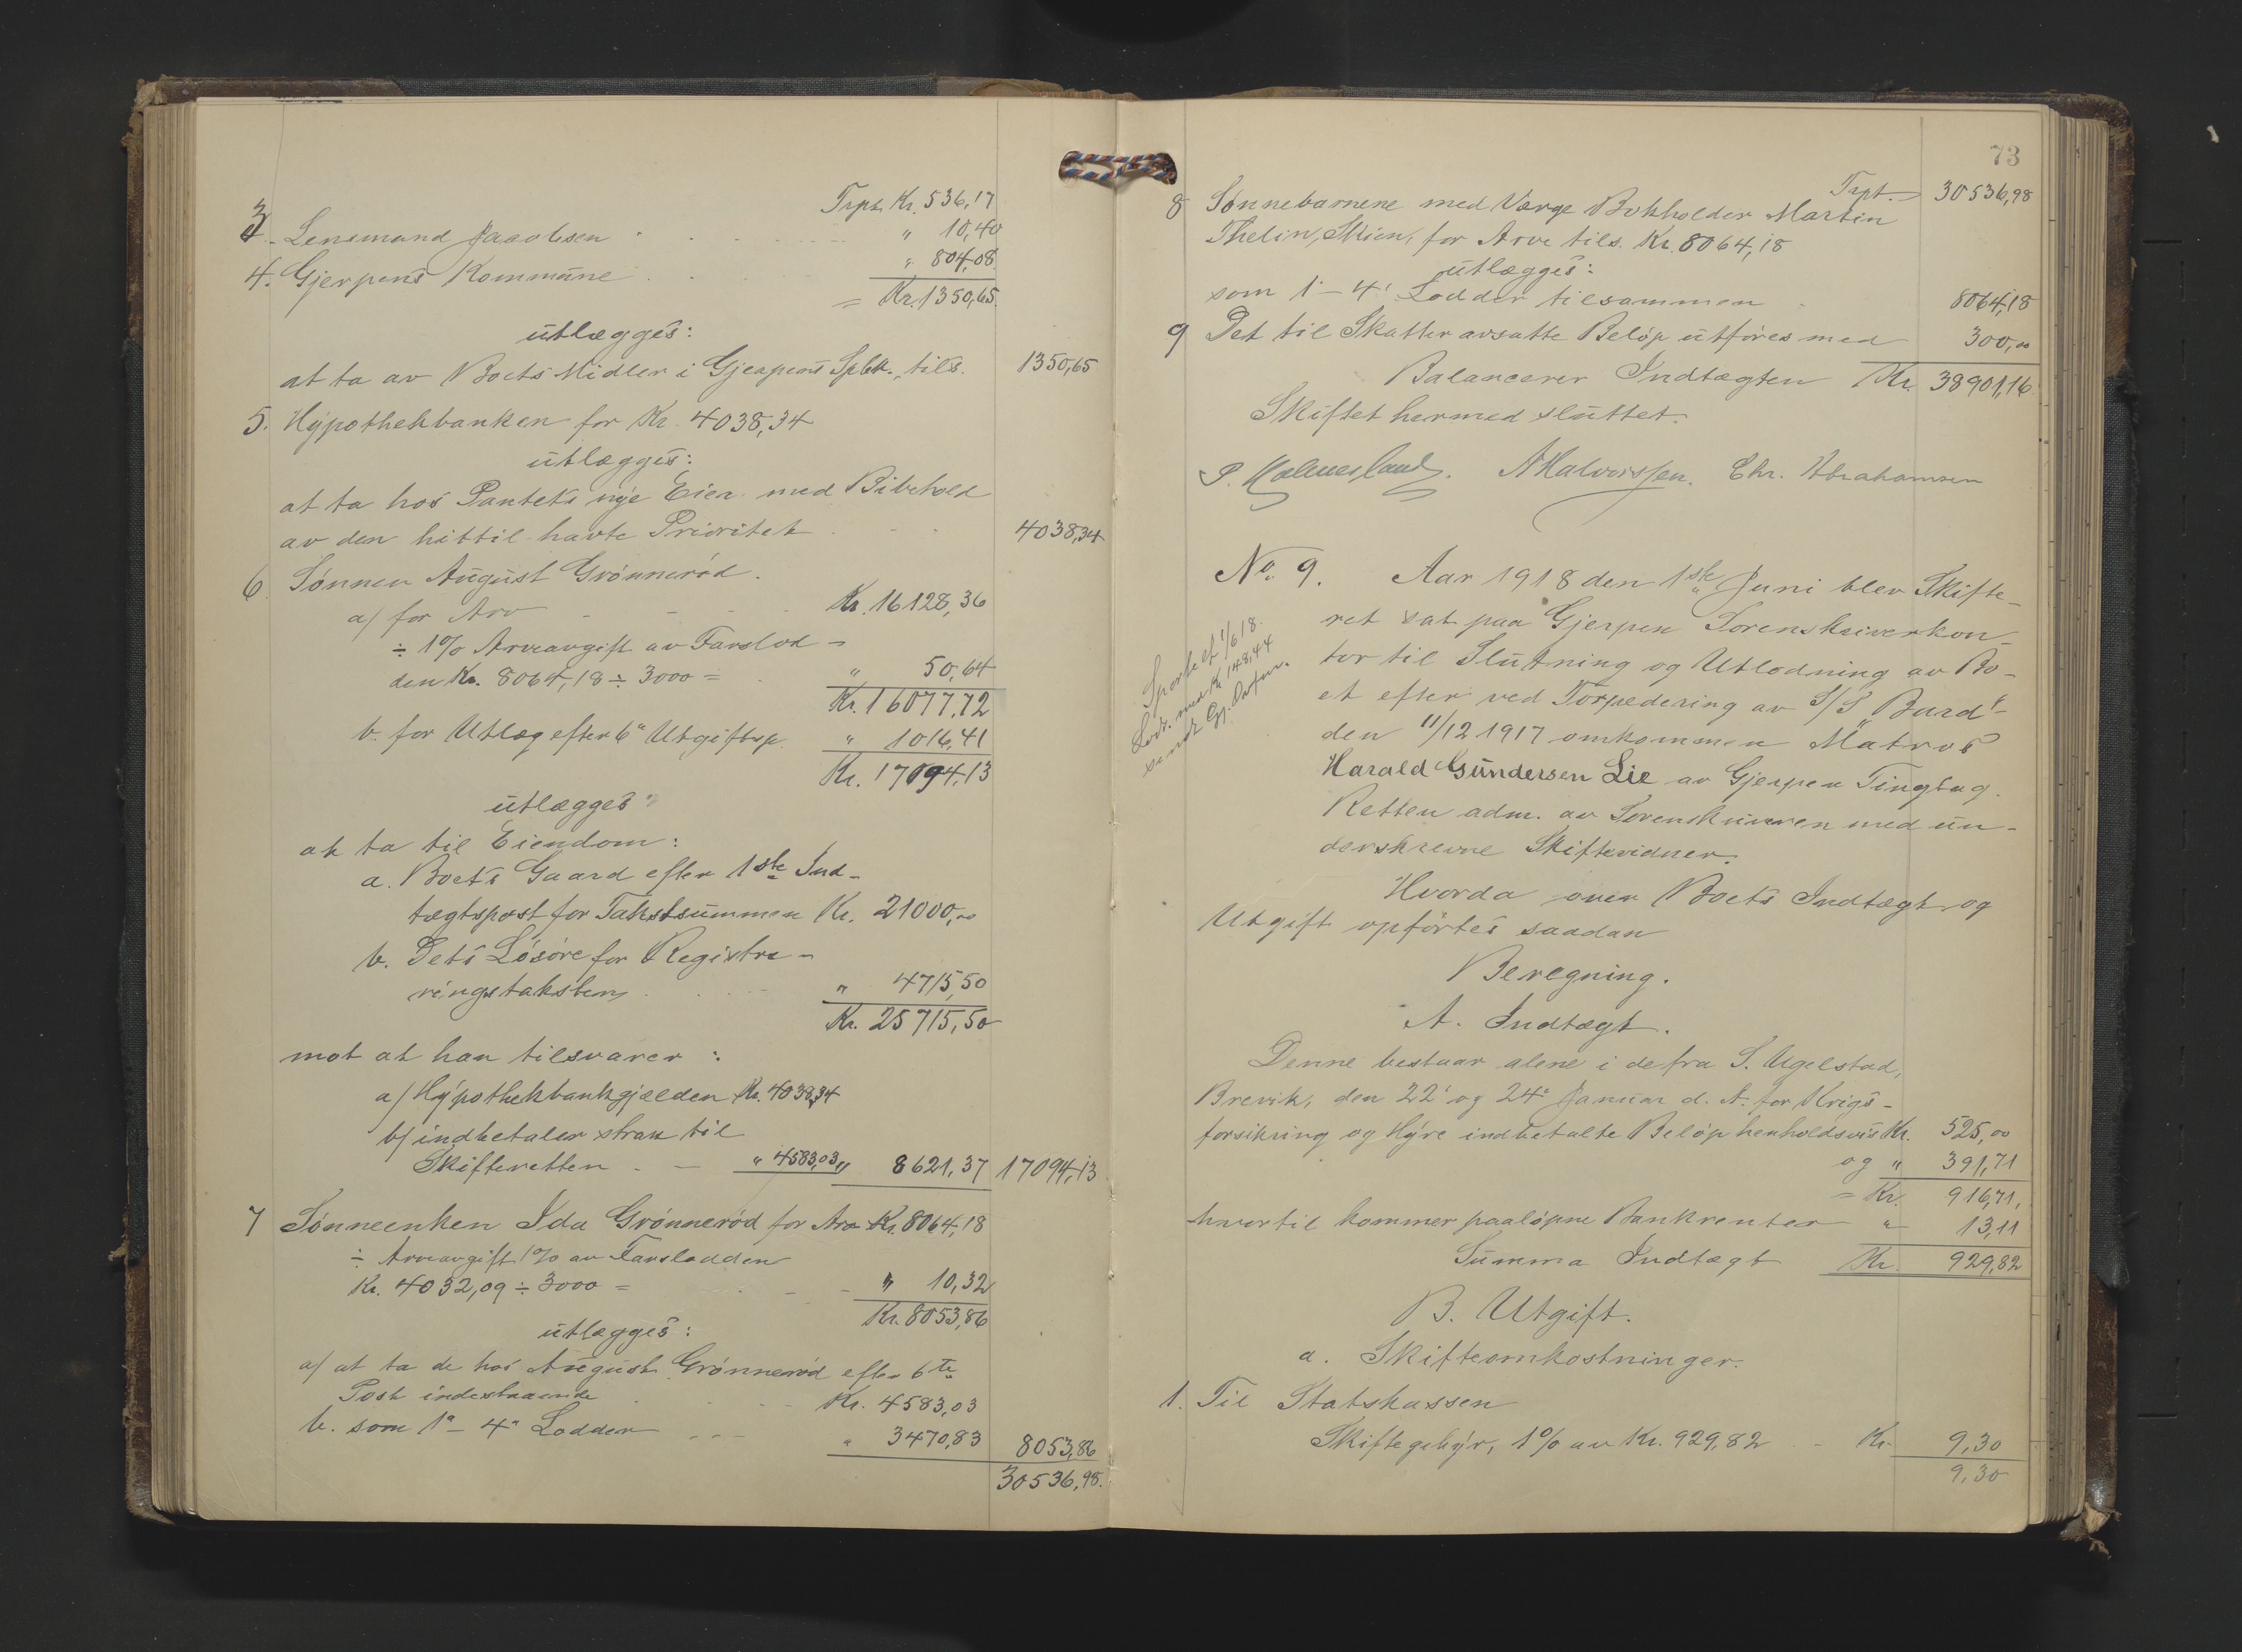 Trpt. Kr. 536,17
3. Lensmand Jacobsen " 10,40
4. Gjerpens Kommune " 804,08
= Kr. 1350,65
utlægges:
at ta av Boets Midler i Gjerpens Spbk., tils. 1350,65
5. Hypothekbanken for Kr. 4038,34
utlægges:
at ta hos Pantets nye Eier med Bibehold
av den hittil havte Prioritet 4038,34
6 Sønnen August Grönneröd.
a/ for Arv Kr. 16128,36
÷ 1% Arveavgift av Farslod-
den Kr. 8064,18 ÷ 3000 = " 50,64
Kr. 16077,72
b. for Utlæg efter 6" Utgiftsp. " 1016,41
Kr. 17094,13
utlægges:
at ta til Eiendom:
a. Boets Gaard efter 1ste Ind-
tægtspost for Takstsummen Kr. 21000,00
b. Dets Løsøre for Registre-
ringstaksten " 4715,50
Kr. 25715,50
mot at han tilsvarer:
a/ Hypothekbankgjælden Kr. 4038,34
b/ indbetaler strax til
Skifteretten " 4583,03 " 8621,37 17094,13
7 Sönneenken Ida Grönneröd for Arv Kr. 8064,18
÷ Arveavgift 1% av Farslodden
Kr. 4032,09 ÷ 3000 = " 10,32
Kr. 8053,86
utlægges:
a/ at ta de hos August Grönneröd efter 6te
Post indestaaende Kr. 4583,03
b. som 1" - 4" Lodder " 3470,83 8053,86
30536,98.
73
Trpt. 30536,98
8 Sönnebarnene med Værge Bokholder Martin
Thelin, Skien, for Arv tils. Kr. 8064,18
utlægges:
som 1' - 4' Lodder tilsammen 8064,18
9 Det til Skatter avsatte Beløp utføres med 300,00
Balancerer Indtægten Kr. 38901,16
Skiftet hermed sluttet.
P. Holmesland. N Halvorssen. Chr. Abrahamsen
No. 9. Aar 1918 den 1ste Juni blev Skifte-
ret sat paa Gjerpen Sorenskriverkon-
tor til Slutning og Utlodning av Bo-
et efter ved Torpedering av S/S "Burd"
den 11/12 1917 omkommen Matros
Harald Gundersen Lie av Gjerpen Tinglag.
Retten adm. av Sorenskriveren med un-
derskrevne Skiftevidner.
1/6 18.
med Kr. 148,44
sendt Gj.
Hvorda over Boets Indtægt og
Utgift opførtes saadan
Beregning.
A. Indtægt.
Denne bestaar alene i de fra S. Ugelstad,
Brevik, den 22' og 24' Januar d. A. for Krigs-
forsikring og Hyre indbetalte Beløp henholdsvis Kr. 525,00
og " 391,71
= Kr. 916,71,
hvortil kommer paaløpne Bankrenter " 13,11
Summa Indtægt Kr. 929,82
B. Utgift.
a. Skifteomkostninger.
1. Til Statskassen
Skiftegebyr, 1% av Kr. 929,82 - Kr. 9,30
9,30